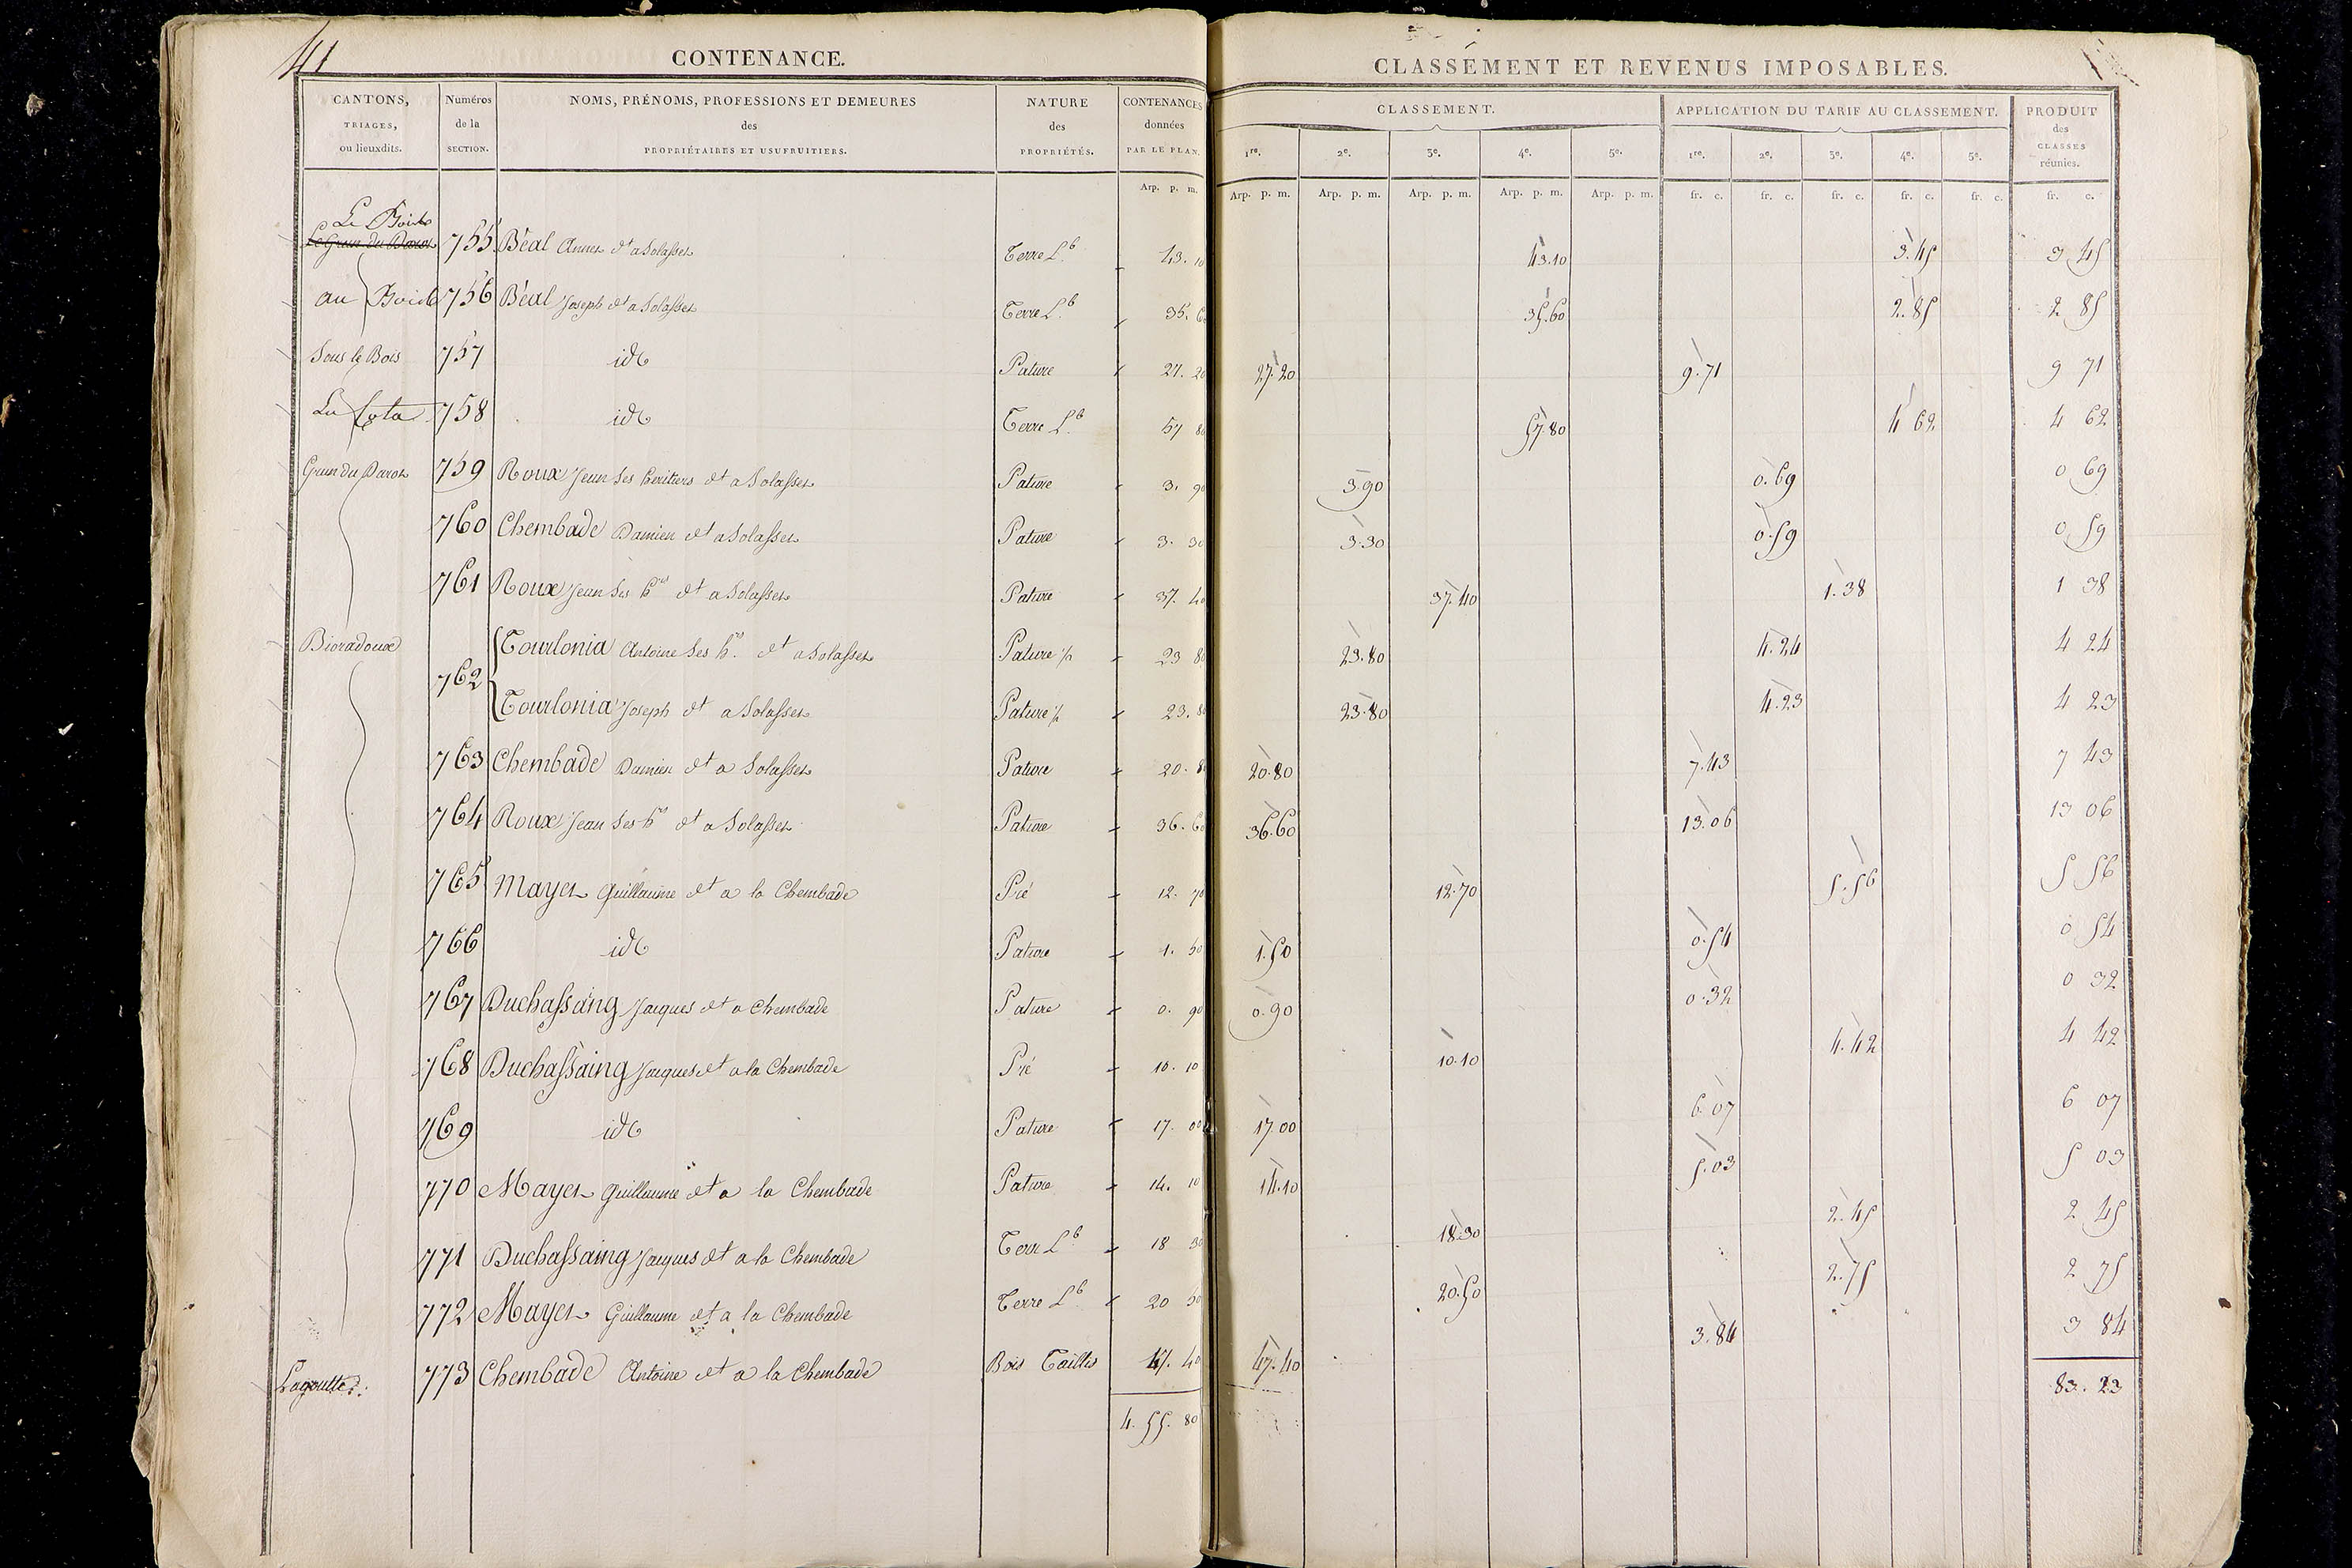 41
CONTENANCE.
CLASSEMENT ET REVENUS IMPOSABLES.
CANTONS, TRIAGES, ou lieuxdits.
Numéros de la SECTION.
NOMS, PRÉNOMS, PROFESSIONS ET DEMEURES des PROPRIÉTAIRES ET USUFRUITIERS.
NATURE des PROPRIÉTÉS.
CONTENANCES données PAR LE PLAN.
CLASSEMENT.
APPLICATION DU TARIF AU CLASSEMENT.
PRODUIT des CLASSES réunies.
1re. 2e. 3e. 4e. 5e. 1re. 2e. 3e. 4e. 5e.
Arp. p. m. Arp. p. m. Arp. p. m. Arp. p. m. Arp. p. m. Arp. p. m. fr. c. fr. c. fr. c. fr. c. fr. c. fr. c.
Le
755 Béal Annet dt a Solasset Terre Lb 43. 10 43.10 3.45 3 45
au 756 Béal Joseph dt a Solasset Terre Lb 35. 60 35.60 2.85 2 85
Sous le Bois 757 id Pature 27. 20 27.20 9.71 9 71
La Cota 758 id Terre Lb 57 80 57.80 4 62 4 62
759 Roux Jean Ses heritiers dt a Solasset Pature 3. 90 3.90 0.69 0 69
760 Chembade Damien dt a Solasset Pature 3. 30 3.30 0.59 0 59
761 Roux Jean Ses hers dt a Solasset Pature 37. 40 37.40 1.38 1 38
Bioradoux 762 Tourlonia Antoine Ses hrs. dt a Solasset Pature ½ 23 80 23.80 4.24 4 24
Tourlonia Joseph dt a Solasset Pature ½ 23. 80 23.80 4.23 4 23
763 Chembade Damien dt a Solasset Pature 20. 80 20.80 7.43 7 43
764 Roux Jean Ses hrs dt a Solasset Pature 36. 60 36.60 13.06 13 06
765 Mayet Guillaume dt a la Chembade Pré 12. 70 12.70 5.56 5 56
766 id Pature 1. 50 1.50 0.54 0 54
767 Duchassaing Jacques dt a Chembade Pature 0. 90 0.90 0.32 0 32
768 Duchassaing Jacques dt a la Chembade Pré 10. 10 10.10 4.42 4 42
769 id Pature 17. 00 17.00 6.07 6 07
770 Mayet Guillaume dt a la Chembade Pature 14. 10 14.10 5.03 5 03
771 Duchassaing Jacques dt a la Chembade Terre Lb 18 30 18.30 2.45 2 45
772 Mayet Guillaume dt a la Chembade Terre Lb 20 50 20.50 2.75 2 75
Lagoutte. 773 Chembade Antoine dt a la Chembade Bois Taillis 47. 40 47.40 3.84 3 84
4. 55. 80 83. 23